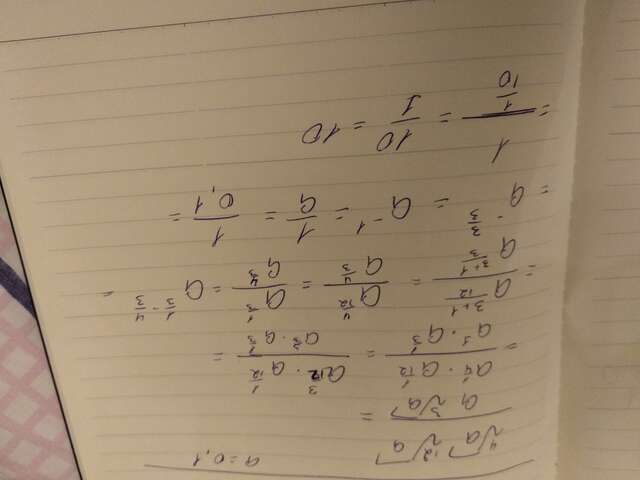 ⁴√a · ¹²√a / a ³√a =    a = 0,1
= a^(1/4) · a^(1/12) / a^1 · a^(1/3) = a^(3/12) · a^(1/12) / a^(3/3) · a^(1/3) =
= a^((3+1)/12) / a^((3+1)/3) = a^(4/12) / a^(4/3) = a^(1/3) / a^(4/3) = a^(1/3 - 4/3) =
= a^(-3/3) = a^(-1) = 1/a = 1/0,1 =
= 1 / (1/10) = 10/1 = 10